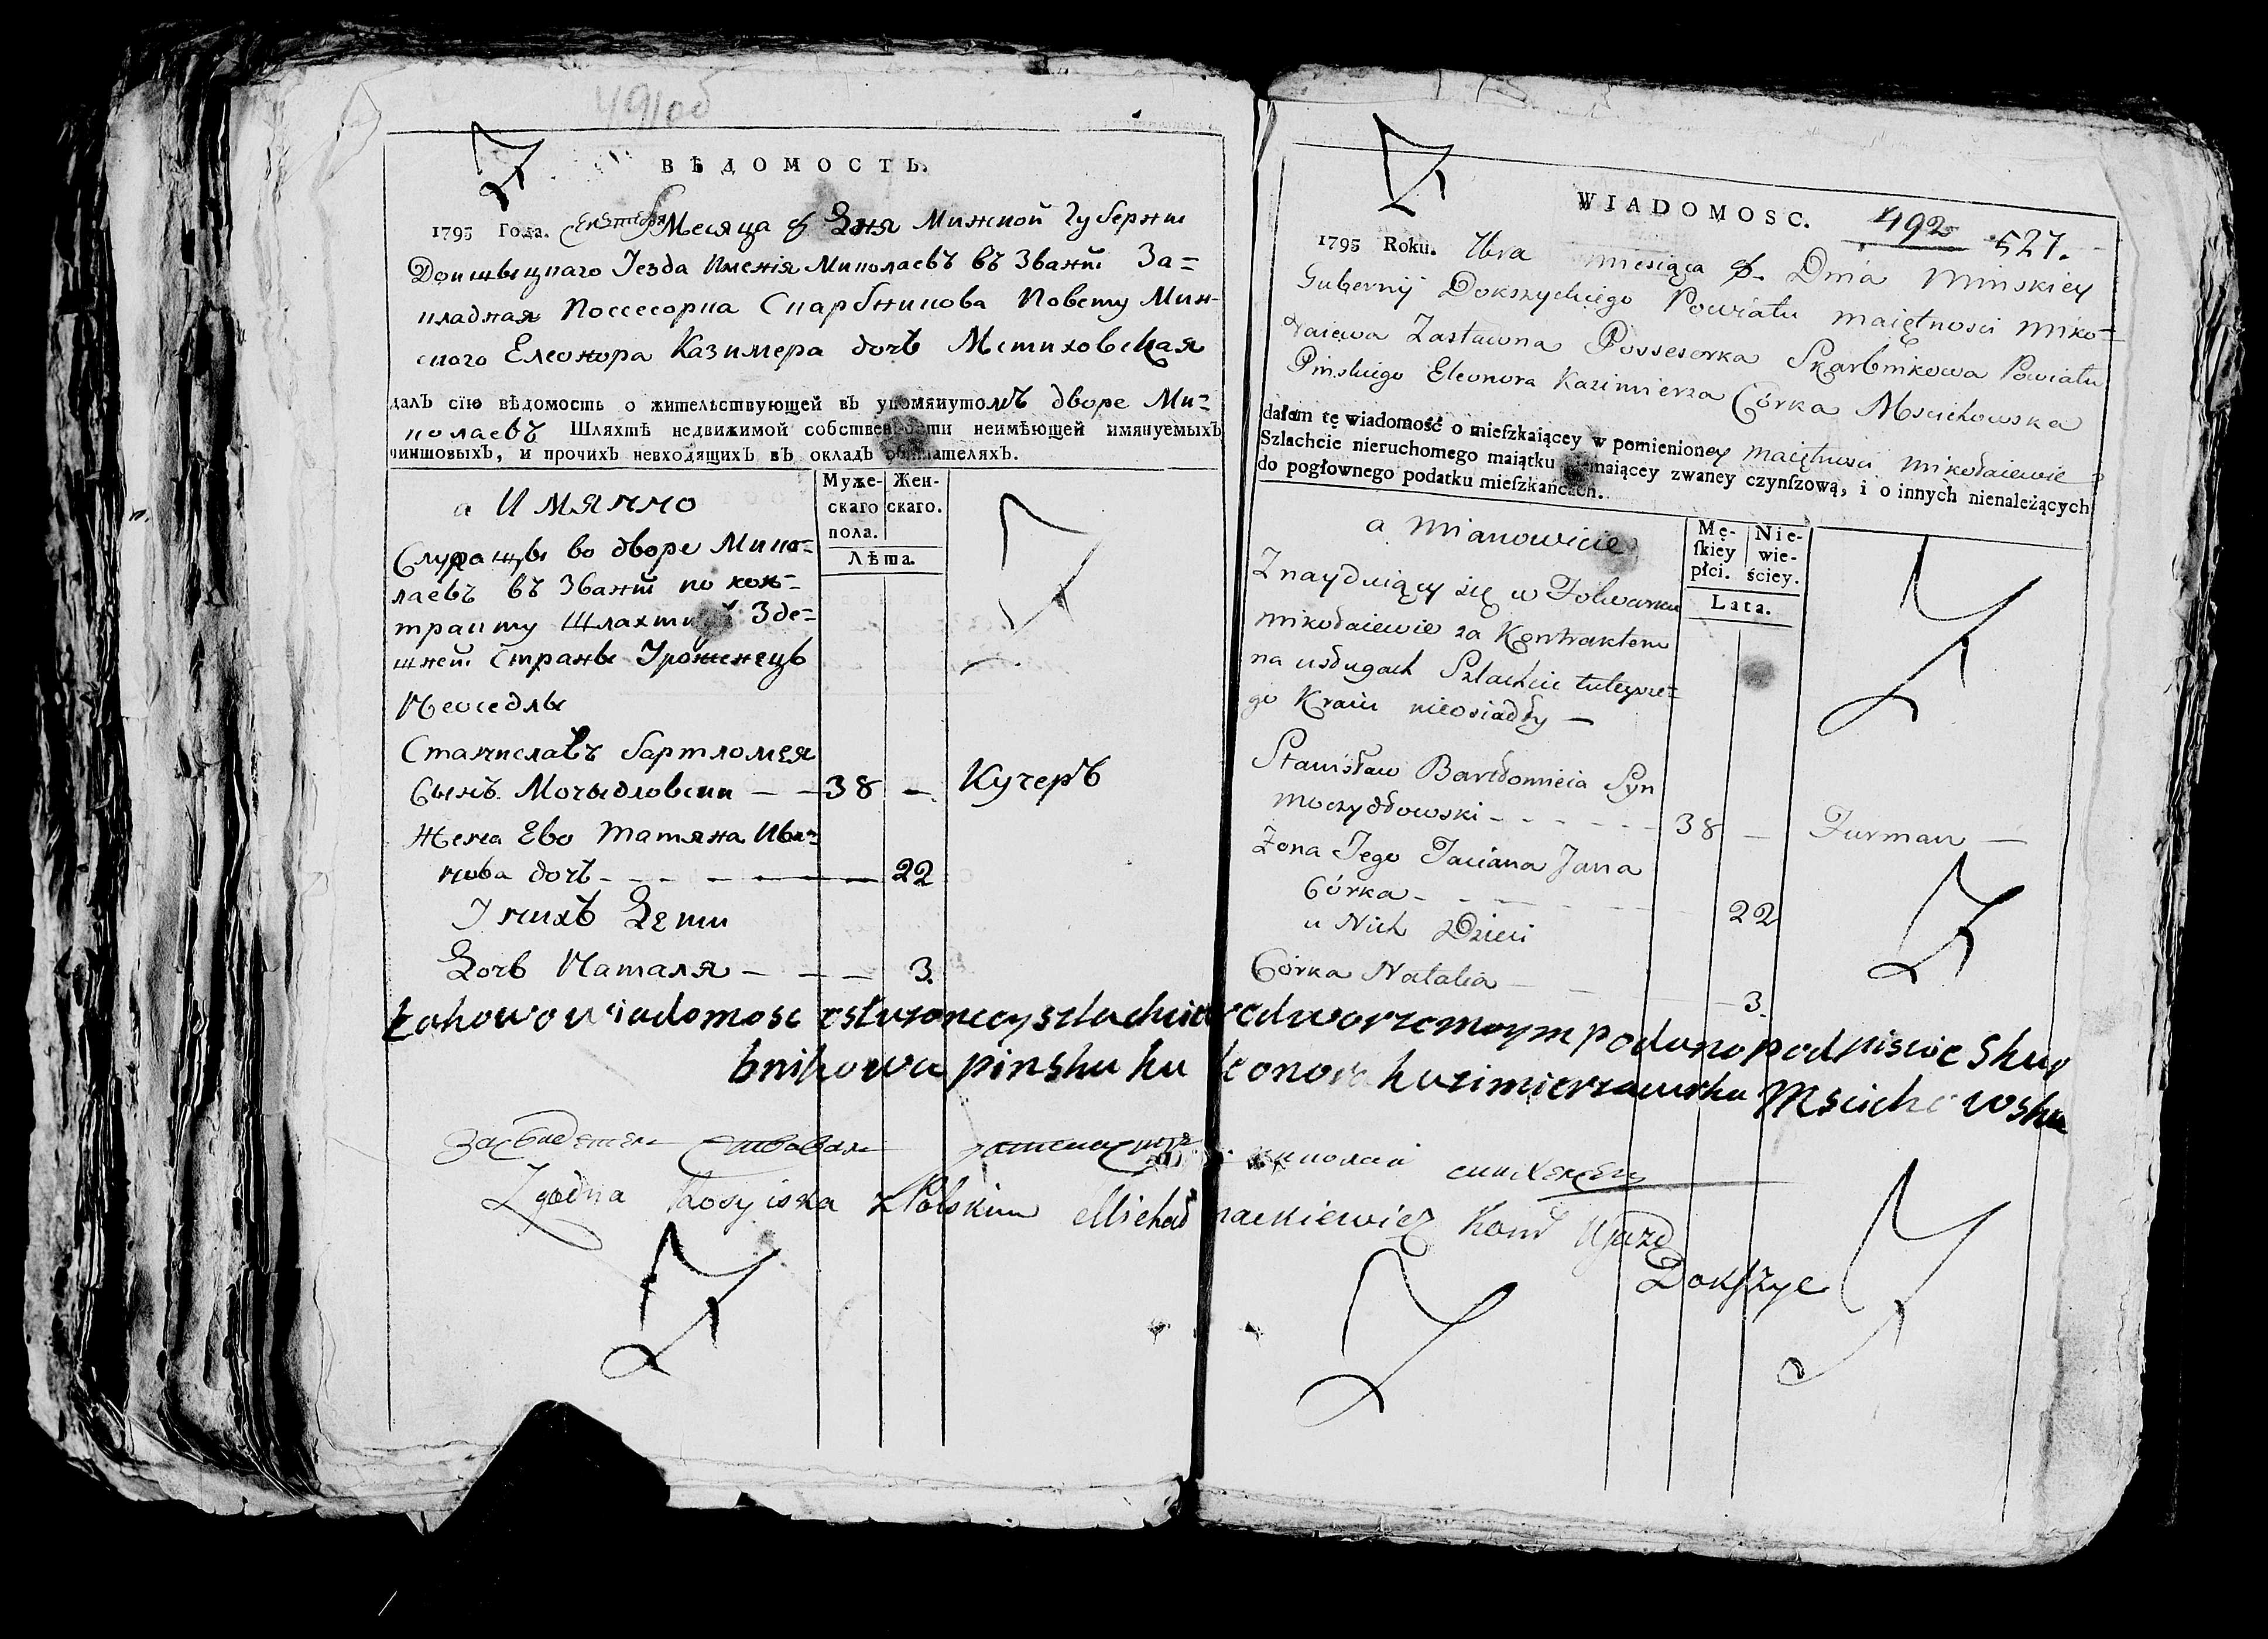 491об
ВѢДОМОСТЬ.
1795 Года. Сентебря Месяца 8 Дня Минской Губернии
Докшыцкаго Уезда Имения Миколаевъ въ Звании За=
кладная Поссесорка Скарбникова Повету Пин-
скаго Елеонора Казимера дочь Мстиховская
далъ сїю вѣдомость о жительствующей въ упомянутомъ дворе Ми=
колаевъ Шляхтѣ недвижимой собственности неимѣющей имянуемыхъ
чиншовыхъ, и прочихъ невходящихъ въ окладъ обывателяхъ.
а Имянно
Муже-
скаго
пола.
Жен-
скаго.
Лѣта.
Служащы во дворе Мико=
лаевъ въ Звании по кон=
тракту Шляхтичъ Зде=
шней Страны Уроженецъ
Неоседлы
Станиславъ Бартломея
Сынъ Мочыдловски - - 38 - Кучеръ
Жена Ево Татяна Ива=
нова дочь - - - - 22
У нихъ Дети
Дочь Наталя - - - 3.
WIADOMOSC.
492 527.
1795 Roku. 7bra miesiąca 8. Dnia Minskiey
Gubernij Dokszyckiego Powiatu maiętnosci Miko=
łaiewa Zastawna Possesorka Skarbnikowa Powiatu
Pinskiego Eleonora Kazimierza Córka Mscichowska
dałam tę wiadomość o mieſzkaiącey w pomienioney maiętnosci Mikołaiewie
Szlachcie nieruchomego maiątku niemaiącey zwaney czynſzową, i o innych nienależących
do pogłownego podatku mieſzkańcach.
a Mianowicie
Mę-
ſkiey
płci.
Nie-
wie-
ściey.
Lata.
Znayduiący się w Folwarku
Mikołaiewie za Kontraktem
na usługach Szlachcic tuteysze=
go Kraiu nieosiadły —
Stanisław Bartłomieia Syn
Moczydłowski - - - - - 38 — Furman —
Żona Jego Taciana Jana
Córka - - - - 22
u Nich Dzieci
Córka Natalia - - - 3.
Łakowo wiadomosc osłurzoncey szlachcie wedworze moym podano podpisuie Skar
bnikowa pinska Eleonora kazimierzawska Mscichowska
Zgodna Rosyiska z Polskim Michał Mackiewicz Kom Ujazd
Dokſzyc